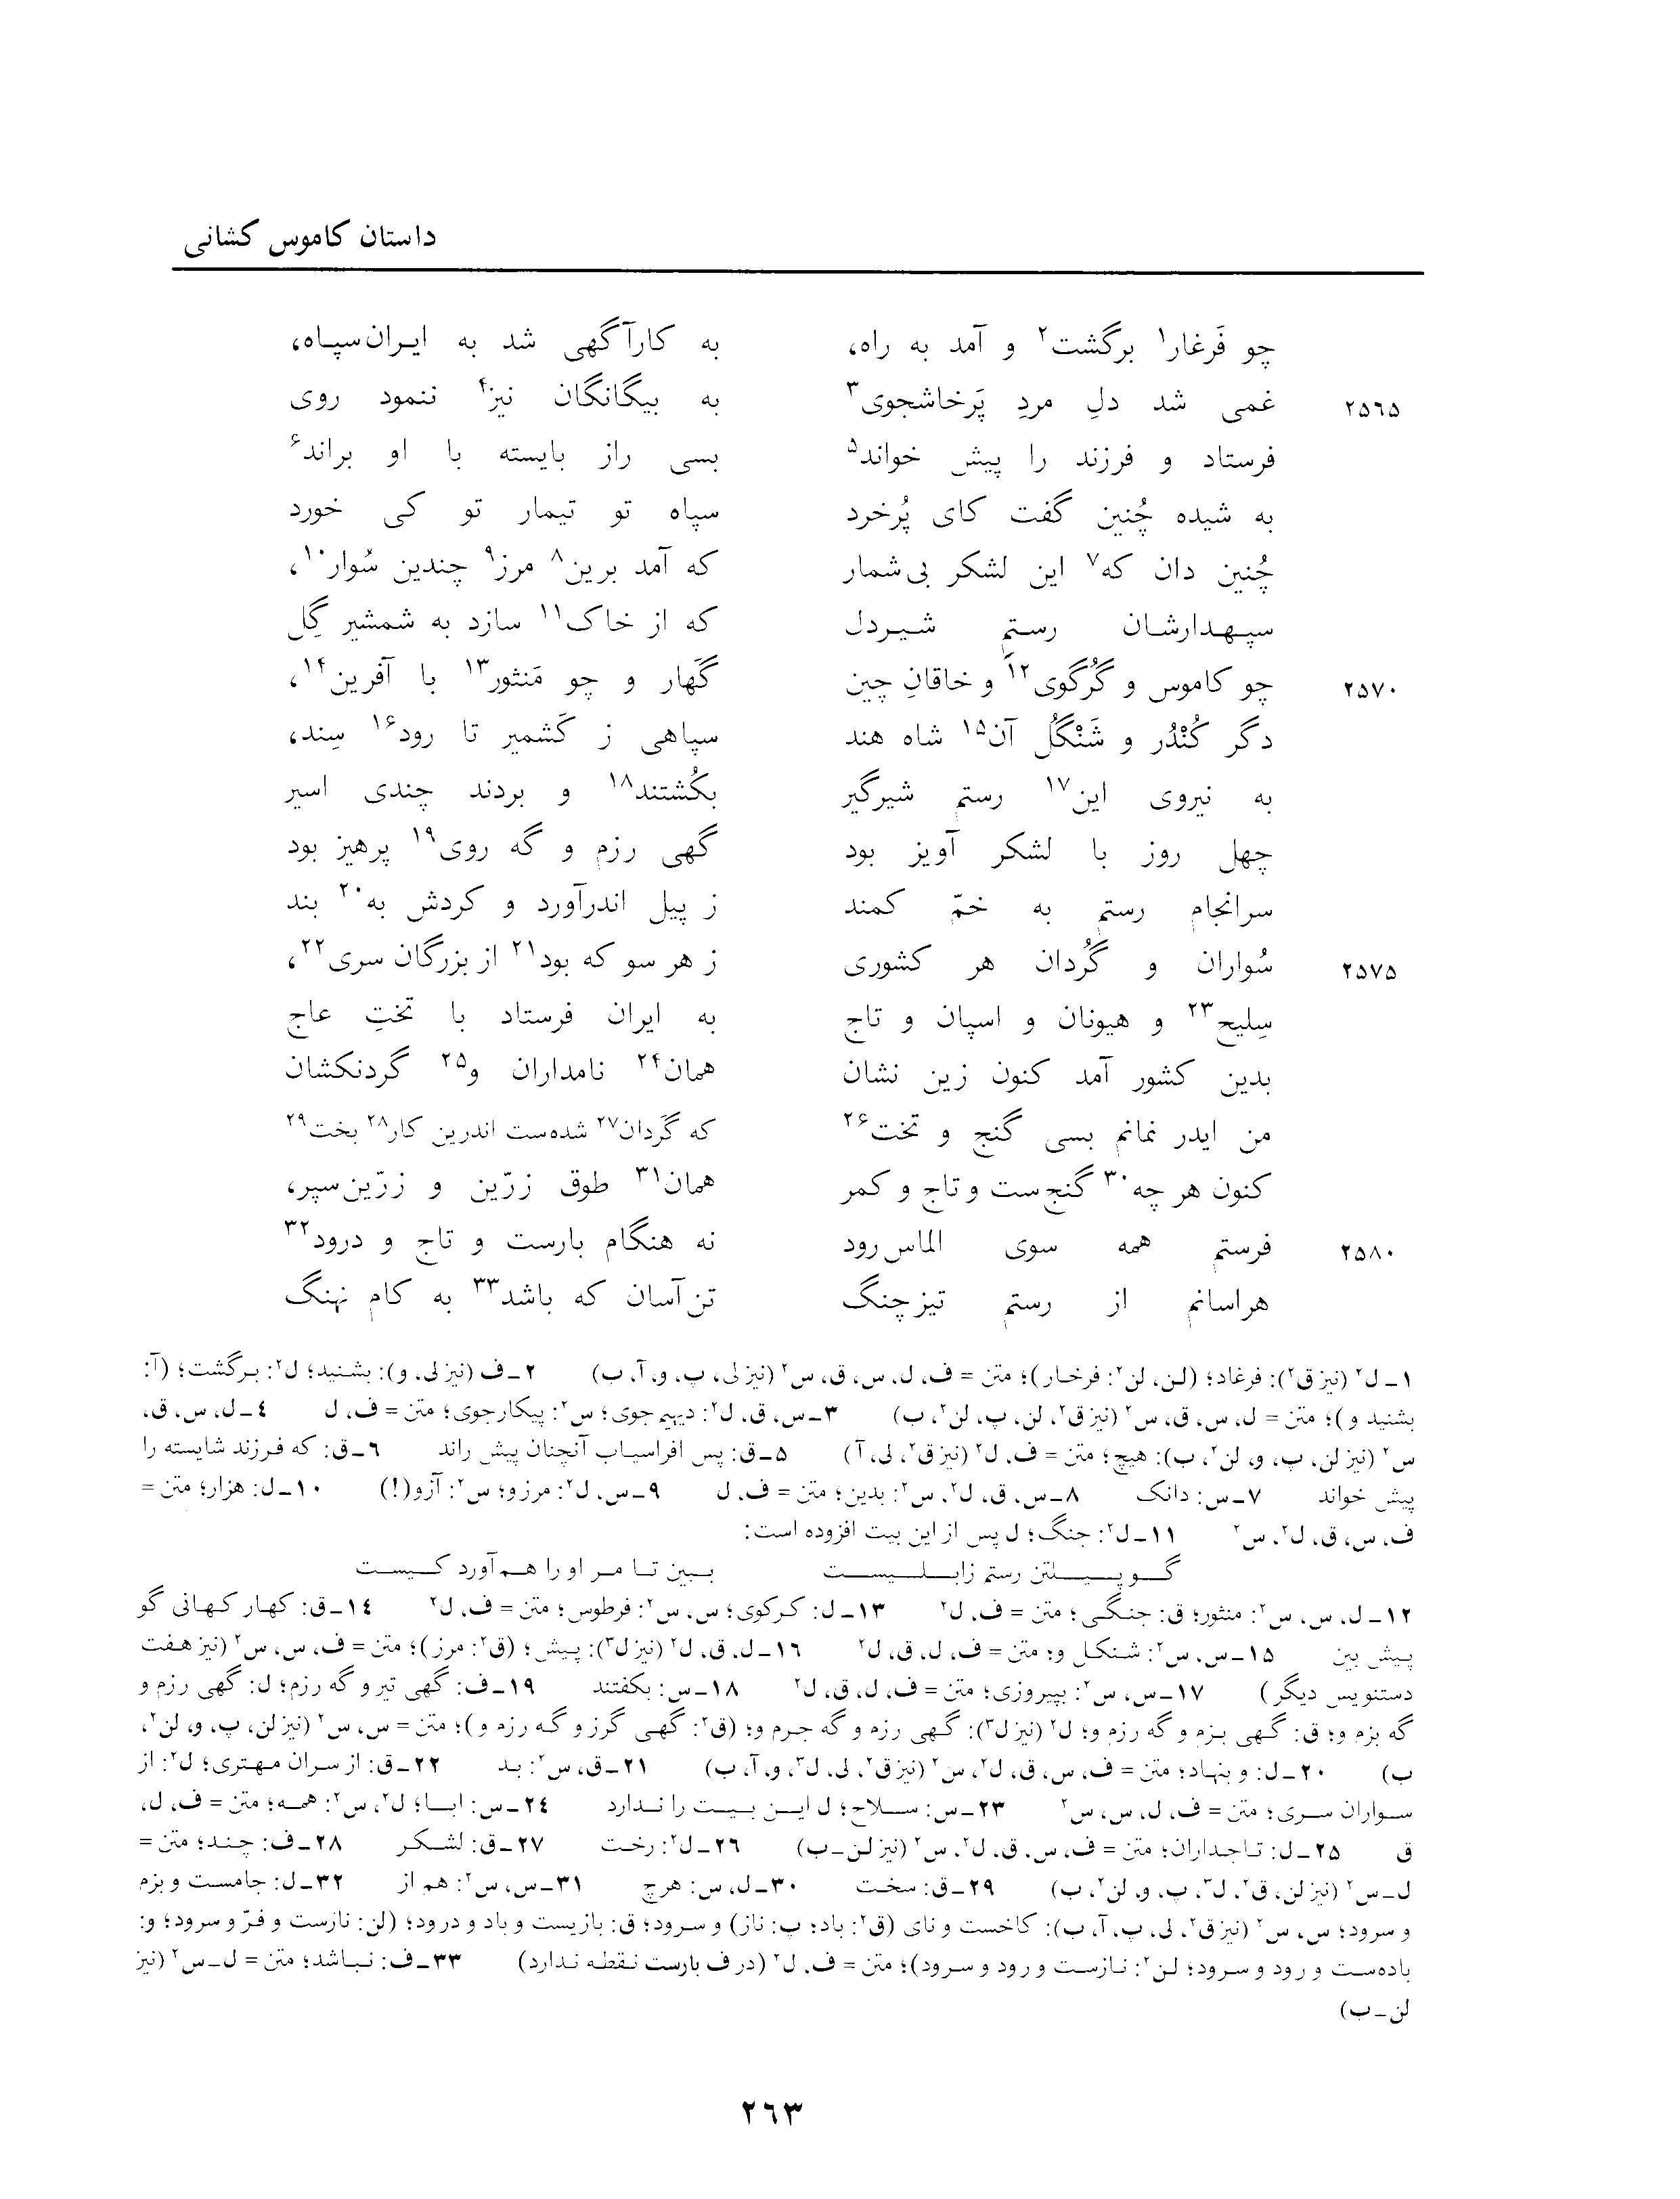 داستان کاموس کشانی
چو فَرغار۱ برگشت۲ و آمد به راه، به کارآگهی شد به ایران‌سپاه،
۲۵۶۵ غمی شد دلِ مردِ پَرخاشجوی۳ به بیگانگان نیز۴ ننمود روی
فرستاد و فرزند را پیش خواند۵ بسی راز بایسته با او براند۶
به شیده چُنین گفت کای پُرخرد سپاه تو تیمار تو کی خورد
چُنین دان که۷ این لشکر بی‌شمار که آمد برین۸ مرز۹ چندین سُوار۱۰،
سپهدارشان رستمِ شیردل که از خاک۱۱ سازد به شمشیر گِل
۲۵۷۰ چو کاموس و گُرگوی۱۲ و خاقانِ چین گَهار و چو مَنثور۱۳ با آفرین۱۴،
دگر کُنْدُر و شَنْگُل آن۱۵ شاه هند سپاهی ز کَشمیر تا رود۱۶ سِند،
به نیروی این۱۷ رستم شیرگیر بکُشتند۱۸ و بردند چندی اسیر
چهل روز با لشکر آویز بود گهی رزم و گه روی۱۹ پرهیز بود
سرانجام رستم به خمّ کمند ز پیل اندرآورد و کردش به۲۰ بند
۲۵۷۵ سُواران و گُردان هر کشوری ز هر سو که بود۲۱ از بزرگان سری۲۲،
سِلیح۲۳ و هیونان و اسپان و تاج به ایران فرستاد با تختِ عاج
بدین کشور آمد کنون زین نشان همان۲۴ نامداران و۲۵ گردنکشان
من ایدر نمانم بسی گنج و تخت۲۶ که گَردان۲۷ شده‌ست اندرین کار۲۸ بخت۲۹
کنون هر چه۳۰ گنج‌ست و تاج و کمر همان۳۱ طوق زرّین و زرّین‌سپر،
۲۵۸۰ فرستم همه سوی الماس‌رود نه هنگام بارست و تاج و درود۳۲
هراسانم از رستم تیزچنگ تن‌آسان که باشد۳۳ به کام نهنگ
۱ـ ل۲ (نیز ق۲): فرغاد؛ (لن، لن۲: فرخار)؛ متن = ف، ل، س، ق، س۲ (نیز لی، پ، و، آ، ب) ۲ـ ف (نیز لی، و): بشنید؛ ل۲: برگشت؛ (آ:
بشنید و)؛ متن = ل، س، ق، س۲ (نیز ق۲، لن، پ، لن۲، ب) ۳ـ س، ق، ل۲: دیهیم جوی؛ س۲: پیکارجوی؛ متن = ف، ل ۴ـ ل، س، ق،
س۲ (نیز لن، پ، و، لن۲، ب): هیچ؛ متن = ف، ل۲ (نیز ق۲، لی، آ) ۵ـ ق: پس افراسیاب آنچنان پیش راند ۶ـ ق: که فرزند شایسته را
پیش خواند ۷ـ س: دانک ۸ـ س، ق، ل۲، س۲: بدین؛ متن = ف، ل ۹ـ س، ل۲: مرز و؛ س۲: آزو(!) ۱۰ـ ل: هزار؛ متن =
ف، س، ق، ل۲، س۲ ۱۱ـ ل۲: جنگ؛ ل پس از این بیت افزوده است:
گو پیلتن رستم زابلیست ببین تا مر او را هم‌آورد کیست
۱۲ـ ل، س، س۲: منثور؛ ق: جنگی؛ متن = ف، ل۲ ۱۳ـ ل: کرکوی؛ س، س۲: فرطوس؛ متن = ف، ل۲ ۱۴ـ ق: کهار کهانی گو
پیش بین ۱۵ـ س، س۲: شنکل و؛ متن = ف، ل، ق، ل۲ ۱۶ـ ل، ق، ل۲ (نیز ل۳): پیش؛ (ق۲: مرز)؛ متن = ف، س، س۲ (نیز هفت
دستنویس دیگر) ۱۷ـ س، س۲: بپیروزی؛ متن = ف، ل، ق، ل۲ ۱۸ـ س: بکفتند ۱۹ـ ف: گهی تیر و گه رزم؛ ل: گهی رزم و
گه بزم و؛ ق: گهی بزم و گه رزم و؛ ل۲ (نیز ل۳): گهی رزم و گه جرم و؛ (ق۲: گهی گرز و گه رزم و)؛ متن = س، س۲ (نیز لن، پ، و، لن۲،
ب) ۲۰ـ ل: و بنهاد؛ متن = ف، س، ق، ل۲، س۲ (نیز ق۲، لی، ل۳، و، آ، ب) ۲۱ـ ق، س۲: بد ۲۲ـ ق: از سران مهتری؛ ل۲: از
سواران سری؛ متن = ف، ل، س، س۲ ۲۳ـ س: سلاح؛ ل این بیت را ندارد ۲۴ـ س: ابا؛ ل۲، س۲: همه؛ متن = ف، ل،
ق ۲۵ـ ل: تاجداران؛ متن = ف، س، ق، ل۲، س۲ (نیز لن ـ ب) ۲۶ـ ل۲: رخت ۲۷ـ ق: لشکر ۲۸ـ ف: چند؛ متن =
ل ـ س۲ (نیز لن، ق۲، ل۳، پ، و، لن۲، ب) ۲۹ـ ق: سخت ۳۰ـ ل، س: هرچ ۳۱ـ س، س۲: هم از ۳۲ـ ل: جامست و بزم
و سرود؛ س، س۲ (نیز ق۲، لی، پ، آ، ب): کاخست و نای (ق۲: باد؛ پ: ناز) و سرود؛ ق: بازیست و باد و درود؛ (لن: نازست و فرّ و سرود؛ و:
باده‌ست و رود و سرود؛ لن۲: نازست و رود و سرود)؛ متن = ف، ل۲ (در ف بارست نقطه ندارد) ۳۳ـ ف: نباشد؛ متن = ل ـ س۲ (نیز
لن ـ ب)
۲۶۳